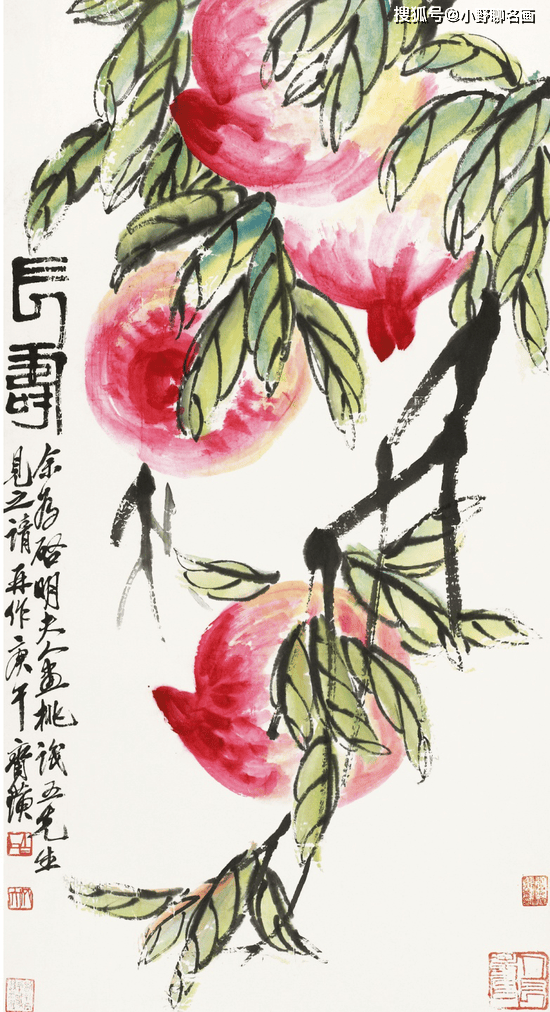 搜狐号@小野聊名画
長壽
余为啓明夫人畫桃誐五先生
見之請再作庚午齊璜